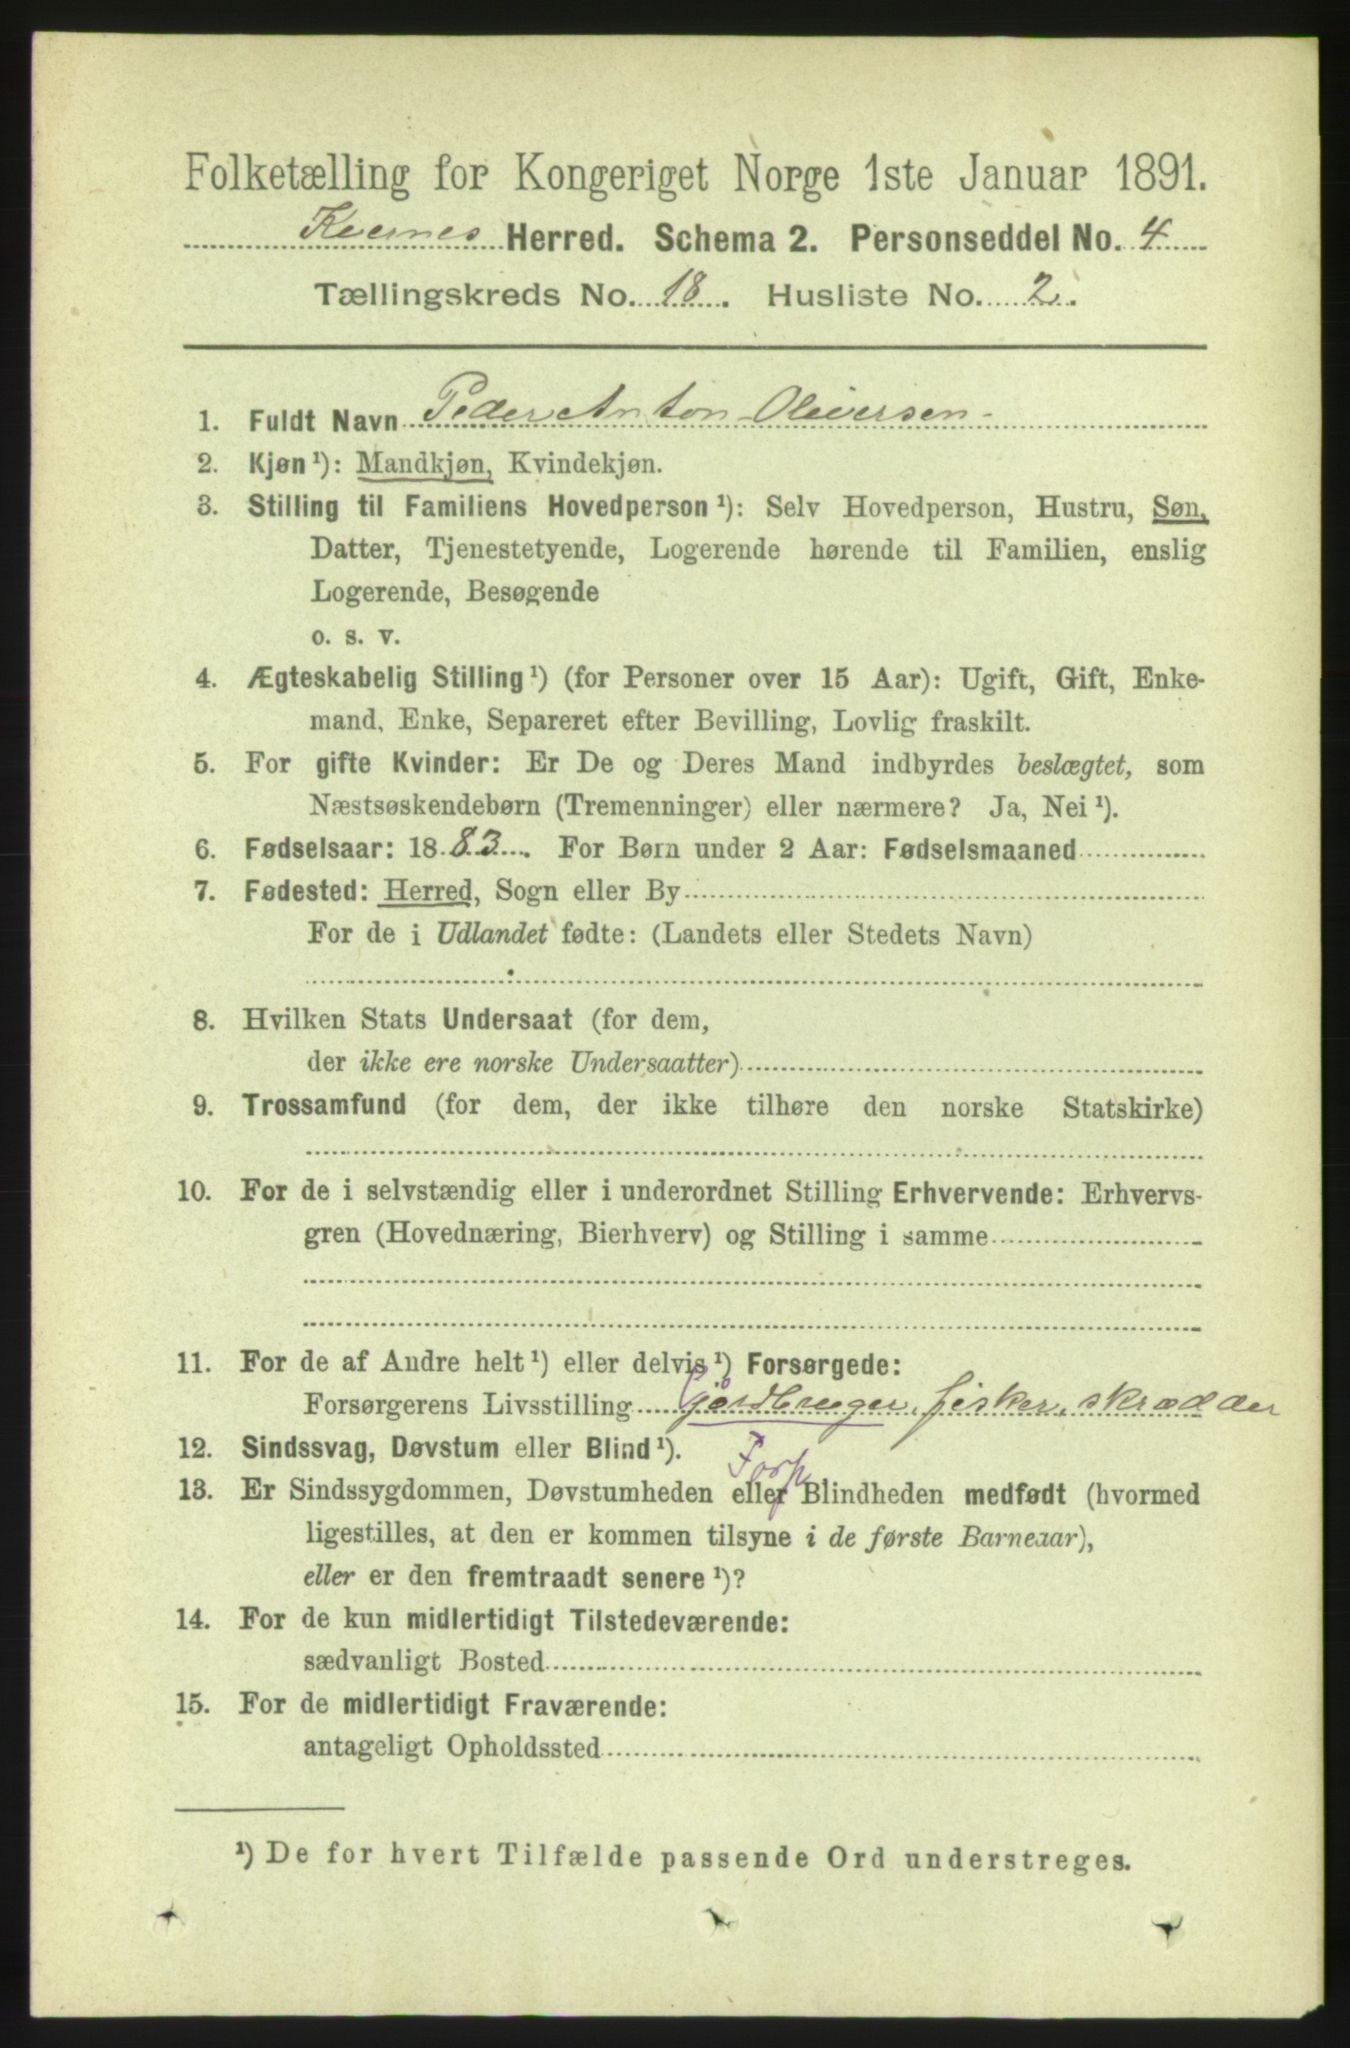 Folketælling for Kongeriget Norge 1ste Januar 1891.
Kvernes Herred. Schema 2. Personseddel No. 4
Tællingskreds No. 18. Husliste No. 2.
1. Fuldt Navn Peder Anton Oliversen
2. Kjøn¹): Mandkjøn, Kvindekjøn.
3. Stilling til Familiens Hovedperson¹): Selv Hovedperson, Hustru, Søn,
Datter, Tjenestetyende, Logerende hørende til Familien, enslig
Logerende, Besøgende
o. s. v.
4. Ægteskabelig Stilling¹) (for Personer over 15 Aar): Ugift, Gift, Enke-
mand, Enke, Separeret efter Bevilling, Lovlig fraskilt.
5. For gifte Kvinder: Er De og Deres Mand indbyrdes beslægtet, som
Næstsøskendebørn (Tremenninger) eller nærmere? Ja, Nei¹).
6. Fødselsaar: 1883. For Børn under 2 Aar: Fødselsmaaned
7. Fødested: Herred, Sogn eller By
For de i Udlandet fødte: (Landets eller Stedets Navn)
8. Hvilken Stats Undersaat (for dem,
der ikke ere norske Undersaatter)
9. Trossamfund (for dem, der ikke tilhøre den norske Statskirke)
10. For de i selvstændig eller i underordnet Stilling Erhvervende: Erhvervs-
gren (Hovednæring, Bierhverv) og Stilling i samme
11. For de af Andre helt¹) eller delvis¹) Forsørgede:
Forsørgerens Livsstilling Gårdbruger, fisker, skrædder
12. Sindssvag, Døvstum eller Blind¹). Forp
13. Er Sindssygdommen, Døvstumheden eller Blindheden medfødt (hvormed
ligestilles, at den er kommen tilsyne i de første Barneaar),
eller er den fremtraadt senere¹)?
14. For de kun midlertidigt Tilstedeværende:
sædvanligt Bosted
15. For de midlertidigt Fraværende:
antageligt Opholdssted
¹) De for hvert Tilfælde passende Ord understreges.